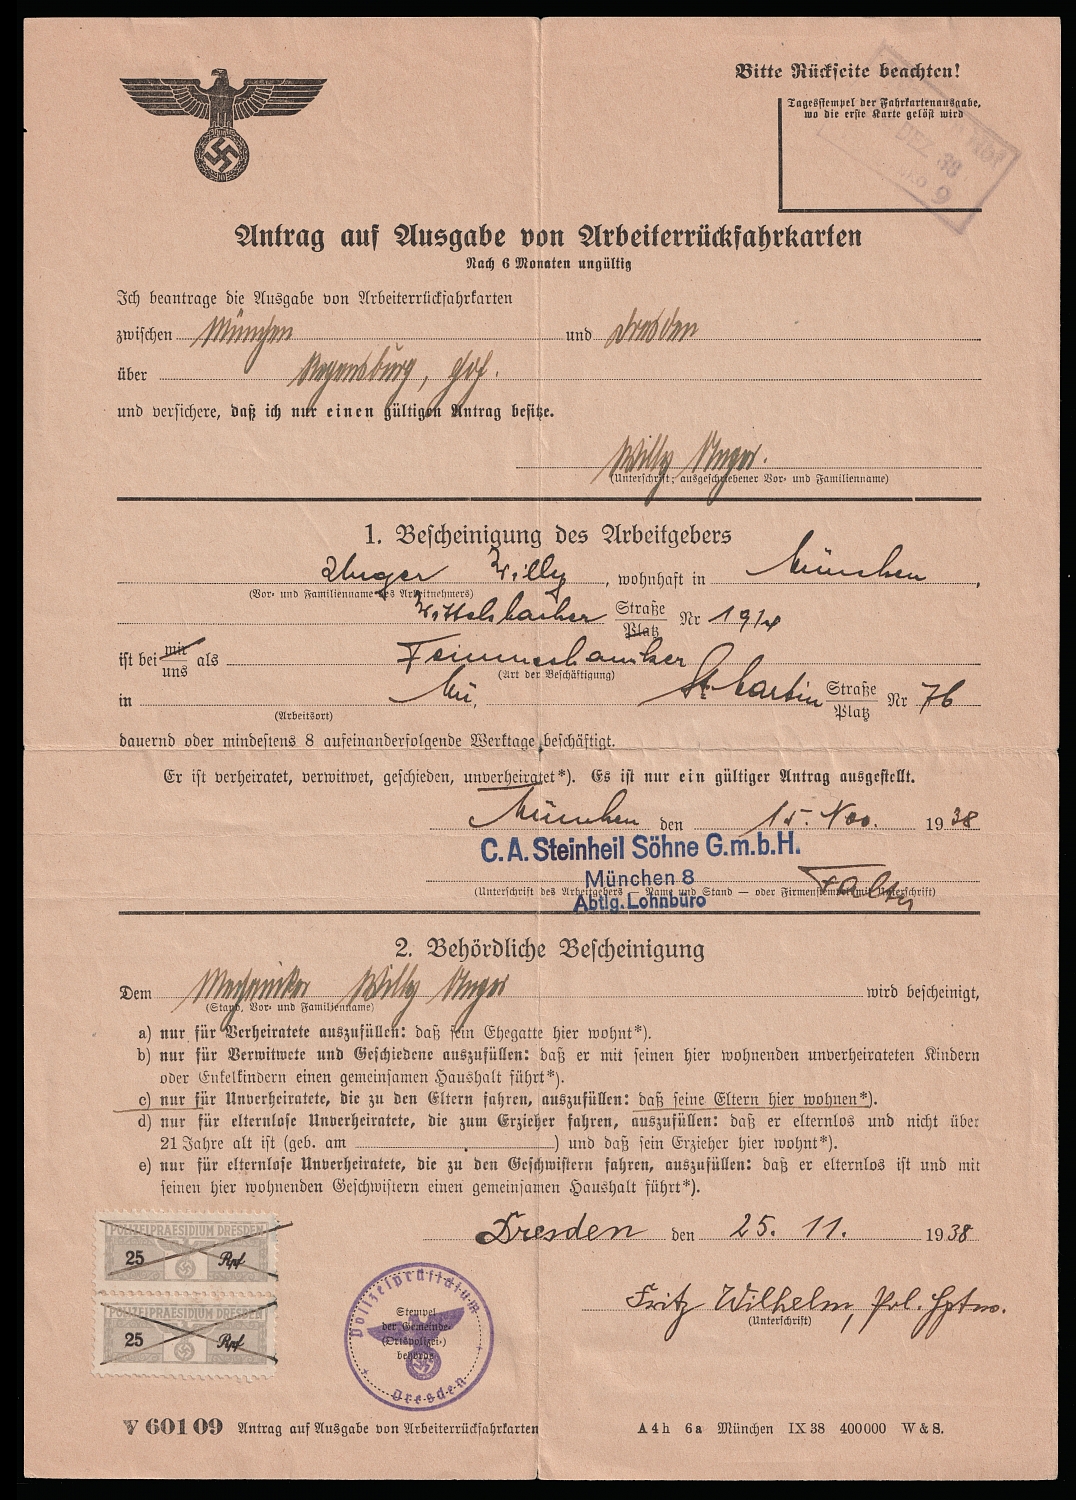 Bitte Rückseite beachten!
Tagesstempel der Fahrkartenausgabe,
wo die erste Karte gelöst wird
Hbf
DEZ. 38
9
Antrag auf Ausgabe von Arbeiterrückfahrkarten
Nach 6 Monaten ungültig
Ich beantrage die Ausgabe von Arbeiterrückfahrkarten
zwischen München und Dresden
über Regensburg, Hof.
und versichere, daß ich nur einen gültigen Antrag besitze.
Willy Unger.
(Unterschrift; ausgeschriebener Vor- und Familienname)
1. Bescheinigung des Arbeitgebers
Unger Willy, wohnhaft in München,
(Vor- und Familienname des Arbeitnehmers)
Wittelsbacher Straße Platz Nr 19/4
ist bei mir uns als Feinmechaniker
(Art der Beschäftigung)
in Mü, St. Martin Straße Platz Nr 76
(Arbeitsort)
dauernd oder mindestens 8 aufeinanderfolgende Werktage beschäftigt.
Er ist verheiratet, verwitwet, geschieden, unverheiratet*). Es ist nur ein gültiger Antrag ausgestellt.
München den 15. Nov. 1938
C. A. Steinheil Söhne G.m.b.H.
München 8
(Unterschrift des Arbeitgebers — Name und Stand — oder Firmenstempel mit Unterschrift)
Abtlg. Lohnbüro
2. Behördliche Bescheinigung
Dem Mechaniker Willy Unger wird bescheinigt,
(Stand, Vor- und Familienname)
a) nur für Verheiratete auszufüllen: daß sein Ehegatte hier wohnt*).
b) nur für Verwitwete und Geschiedene auszufüllen: daß er mit seinen hier wohnenden unverheirateten Kindern
oder Enkelkindern einen gemeinsamen Haushalt führt*).
c) nur für Unverheiratete, die zu den Eltern fahren, auszufüllen: daß seine Eltern hier wohnen*).
d) nur für elternlose Unverheiratete, die zum Erzieher fahren, auszufüllen: daß er elternlos und nicht über
21 Jahre alt ist (geb. am ) und daß sein Erzieher hier wohnt*).
e) nur für elternlose Unverheiratete, die zu den Geschwistern fahren, auszufüllen: daß er elternlos ist und mit
seinen hier wohnenden Geschwistern einen gemeinsamen Haushalt führt*).
Dresden den 25. 11. 1938
POLIZEIPRAESIDIUM DRESDEN
25 Rpf
POLIZEIPRAESIDIUM DRESDEN
25 Rpf
Polizeipräsidium
Stempel
der Gemeinde-
(Ortspolizei-)
behörde
Dresden
Fritz Wilhelm, Pol. Hptw.
(Unterschrift)
V 601 09 Antrag auf Ausgabe von Arbeiterrückfahrkarten A 4 h 6 a München IX 38 400 000 W & S.